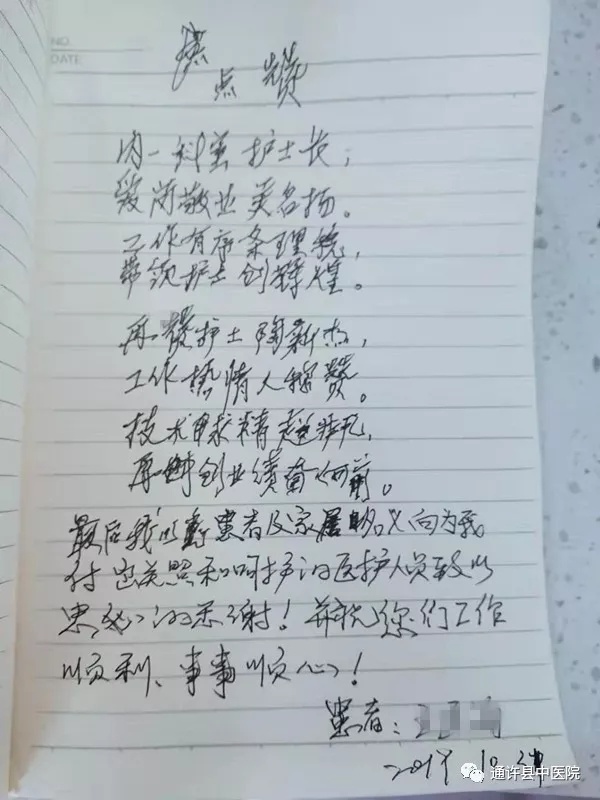 NO.
DATE
点赞
内一科 护士长,
爱岗敬业美名扬。
工作有序条理
带领护士创辉煌。
再 护士陶新杰,
工作热情人称赞。
技术求精超非凡,
再 创业绩奋
最后我以 患者及家属 名义向为我
付出关照和呵护的医护人员致以
衷心的感谢!并祝您们工作
顺利、事事顺心!
患者:
2019 10
通许县中医院